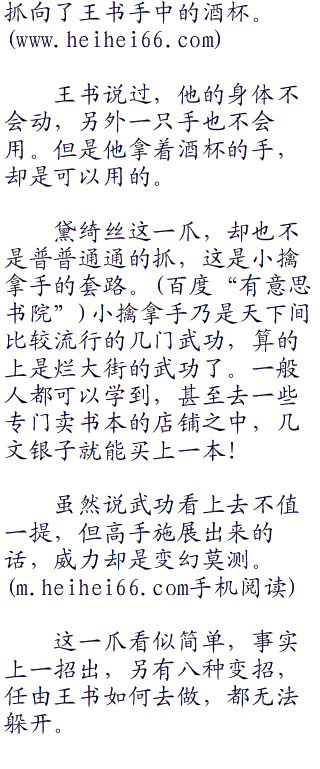 抓向了王书手中的酒杯。
(www.heihei66.com)
王书说过，他的身体不
会动，另外一只手也不会
用。但是他拿着酒杯的手，
却是可以用的。
黛绮丝这一爪，却也不
是普普通通的抓，这是小擒
拿手的套路。(百度“有意思
书院”)小擒拿手乃是天下间
比较流行的几门武功，算的
上是烂大街的武功了。一般
人都可以学到，甚至去一些
专门卖书本的店铺之中，几
文银子就能买上一本！
虽然说武功看上去不值
一提，但高手施展出来的
话，威力却是变幻莫测。
(m.heihei66.com手机阅读)
这一爪看似简单，事实
上一招出，另有八种变招，
任由王书如何去做，都无法
躲开。